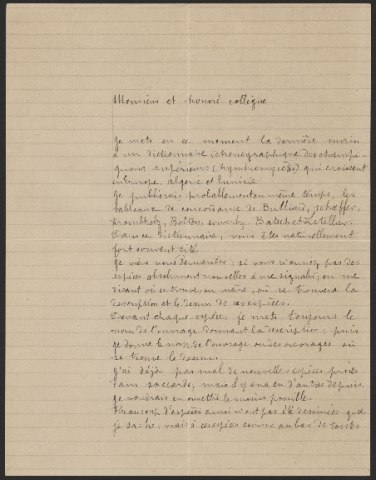 Monsieur et honoré collègue
Je mets en ce moment la dernière main
à un dictionnaire iconographique des champi-
gnons supérieurs (hyménomycètes) qui croissent
en Europe, Algérie et Tunisie.
Je publierai probablement en même temps, les
tableaux de concordance de Bulliard, Schaeffer,
Krombholz, Bolton, Sowerby, Batsch et Letellier.
Dans ce dictionnaire, vous êtes naturellement
fort souvent cité.
Je viens vous demander, si vous n'aurez pas des
espèces absolument nouvelles à me signaler, en me
disant où se trouve, ou même, où se trouvera la
description et le dessin de ces espèces.
Devant chaque espèce je mets toujours le
nom de l'ouvrage donnant la description; puis
je donne le nom de l'ouvrage ou des ouvrages où
se trouve le dessin.
J'ai déjà pas mal de nouvelles espèces prises
dans Saccardo, mais il y en a eu d'autres depuis.
Je voudrais en omettre le moins possible.
Beaucoup d'espèces aussi n'ont pas été dessinées que
je sache; mais à ces espèces comme au bas de toutes